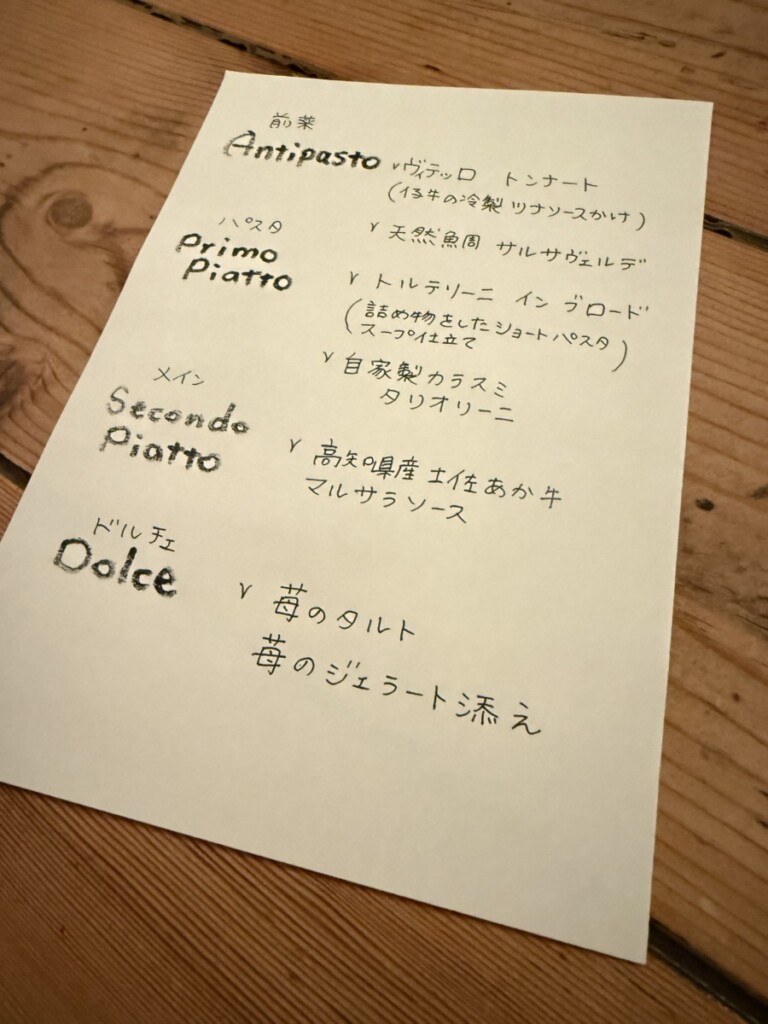 前菜
Antipasto
√ヴィテッロ トンナート
(仔牛の冷製 ツナソースかけ)
√ 天然魚周 サルサヴェルデ
パスタ
Primo
Piatto
√ トルテリーニ イン ブロード
(詰め物をしたショートパスタ
スープ仕立て)
√ 自家製カラスミ
タリオリーニ
メイン
Secondo
Piatto
√ 高知県産 土佐あか牛
マルサラソース
ドルチェ
Dolce
√ 苺のタルト
苺のジェラート添え